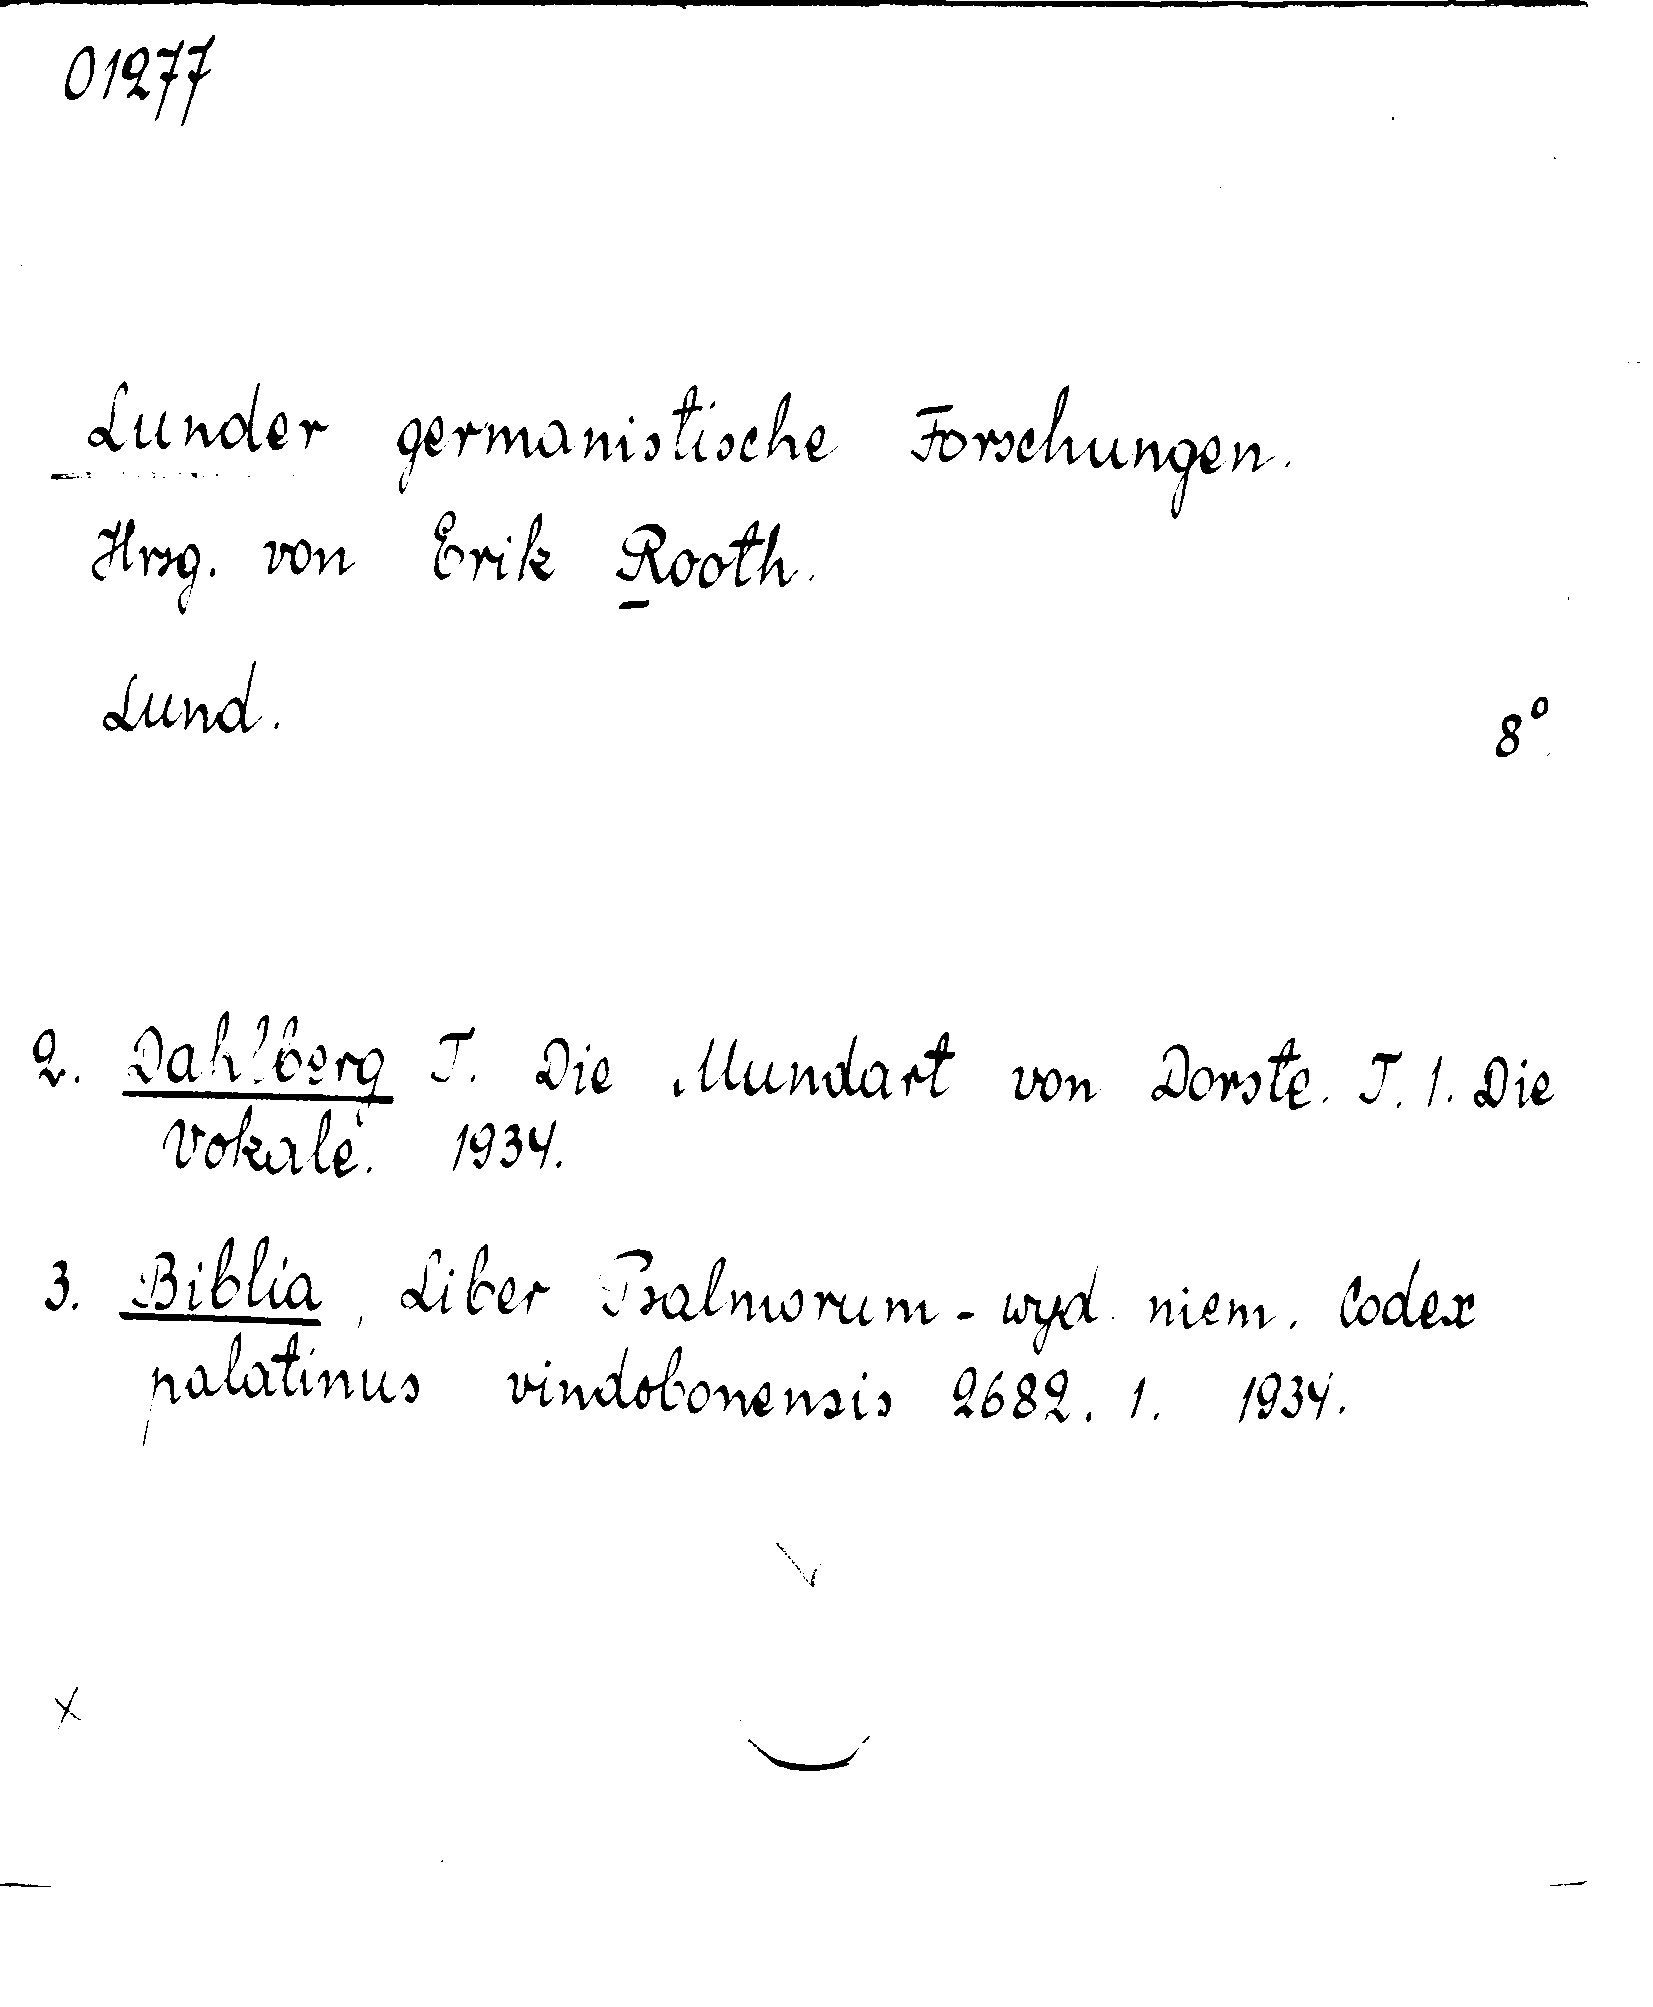 01277
Lunder germanistische Forschungen.
Hrsg. von Erik Rooth.
Lund. 8°
2. Dahlberg T. Die Mundart von Dorste. T. 1. Die
Vokale. 1934.
3. Biblia, Liber Psalmorum - wyd. niem. Codex
palatinus vindobonensis 2682. 1. 1934.
x